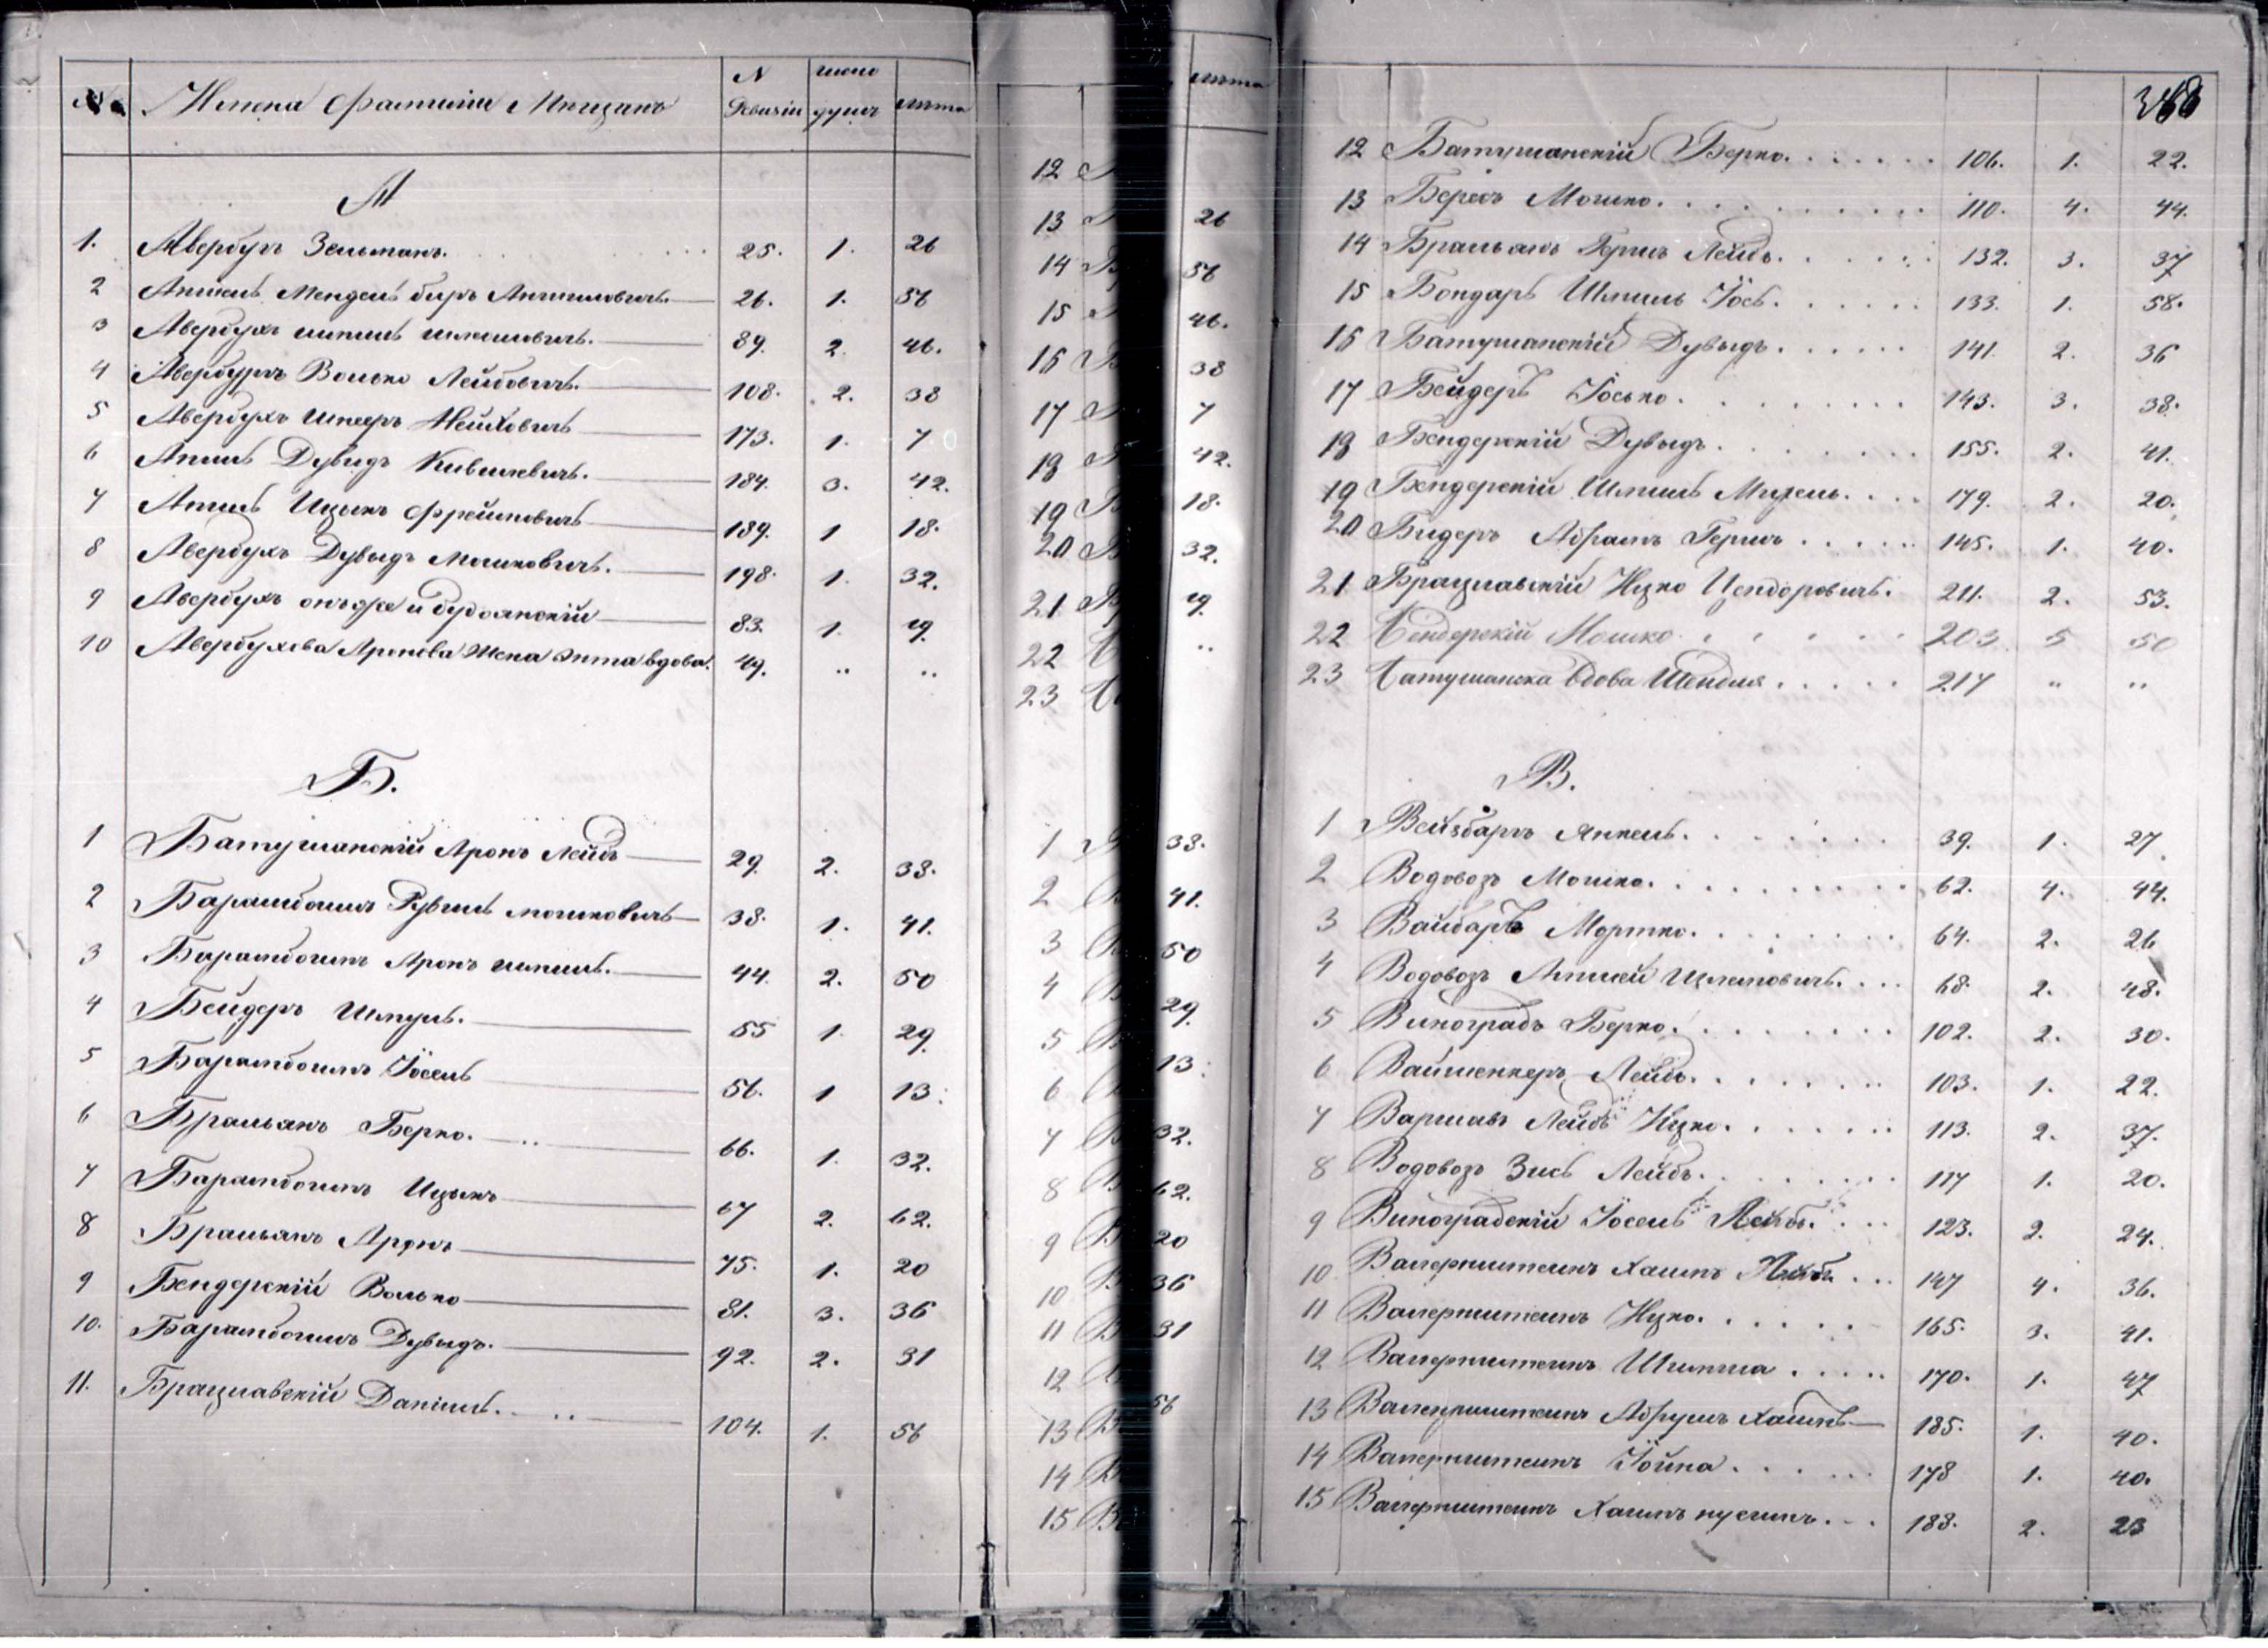 № Имена Фамиліи Мещанъ N Ревизіи число душъ лѣта
А
1. Авербухъ Зельманъ. 25. 1. 26
2 Аншель Мендель биръ Аншиловичъ. 26. 1. 56
3 Авербухъ шмиль шлеомовичъ. 89. 2. 46.
4 Авербухъ Волько Лейбовичъ. 108. 2. 38
5 Авербухъ 173. 1. 7
6 Апель Дувидъ Кившіевичъ. 184. 3. 42.
7 Апель Ицыкъ Фроимовичъ 189. 1 18.
8 Авербухъ Дувыдъ Мошковичъ. 198. 1. 32.
9 Авербухъ онъ же и 83. 1. 19.
10 Авербухова Аронова Жена Энта вдова. 49. .. ..
Б.
1 Батушанскій Аронъ Лейбъ 29. 2. 38.
2 Барамбоимъ Рувинъ мошковичъ 38. 1. 41.
3 Барамбоимъ Аронъ шмиль. 44. 2. 50
4 Бейдеръ Шмуль. 55 1. 29.
5 Барамбоимъ Іосель 56. 1 13.
6 Бральянъ Берко. 66. 1. 32.
7 Барамбоимъ Ицыкъ 67 2. 62.
8 Бральянъ Аронъ 75. 1. 20
9 Бендерскій Волько 81. 3. 36
10. Барамбоимъ Дувыдъ. 92. 2. 31
11. Брацлавскій Даніилъ. 104. 1. 56
лѣта
12
13 26
14 56
15 46.
16 38
17 7
18 42.
19 18.
20 32.
21 19.
22 ..
23
1 38.
2 41.
3 50
4 29.
5 13.
6
7 32.
8 62.
9 20
10 36
11 31
12
13 56
14
15
12 Батушанскій Берко. 106. 1. 22.
13 Бересъ Мошко. 110. 4. 44.
14 Бральянъ Гершъ Лейбъ. 132. 3. 37
15 Бондарь Шмиль Іось. 133. 1. 58.
16 Батушанскій Дувыдъ. 141. 2. 36
17 Бейдеръ Іосько. 143. 3. 38.
18 Бендерскій Дувыдъ. 155. 2. 41.
19 Бендерскій Шмиль Михель. 179. 2. 20.
20 Бидеръ Абрамъ Гершъ. 145. 1. 40.
21 Брацлавскій Ицко Цендоровичъ. 211. 2. 53.
22 Бендерскій Мошко. 203 5 50
23 Батушанска вдова Шендля. 217 .. ..
В.
1 Вейзбаргъ Янкель. 39. 1. 27.
2 Водовозъ Мошко. 62. 4. 44.
3 Вайбаргъ Мортко. 64. 2. 26
4 Водовозъ Аншей Шлемовичъ. 68. 2. 48.
5 Виноградъ Берко. 102. 2. 30.
6 Вайшенкеръ Лейбъ. 103. 1. 22.
7 Варшавъ Лейбъ Ицко. 113. 2. 37.
8 Водовозъ Зись Лейбъ. 117 1. 20.
9 Виноградскій Іосель Лейбъ. 123. 2. 24.
10 Ваперштеинъ Хаимъ Лейбъ. 147 4. 36.
11 Ваперштеинъ Ицко. 165. 3. 41.
12 Ваперштеинъ Шимша. 170. 1. 47
13 Ваперштеинъ Абрумъ Хаимъ 185. 1. 40.
14 Ваперштеинъ Іойна. 178 1. 40.
15 Ваперштеинъ Хаимъ нусинъ. 188. 2. 23